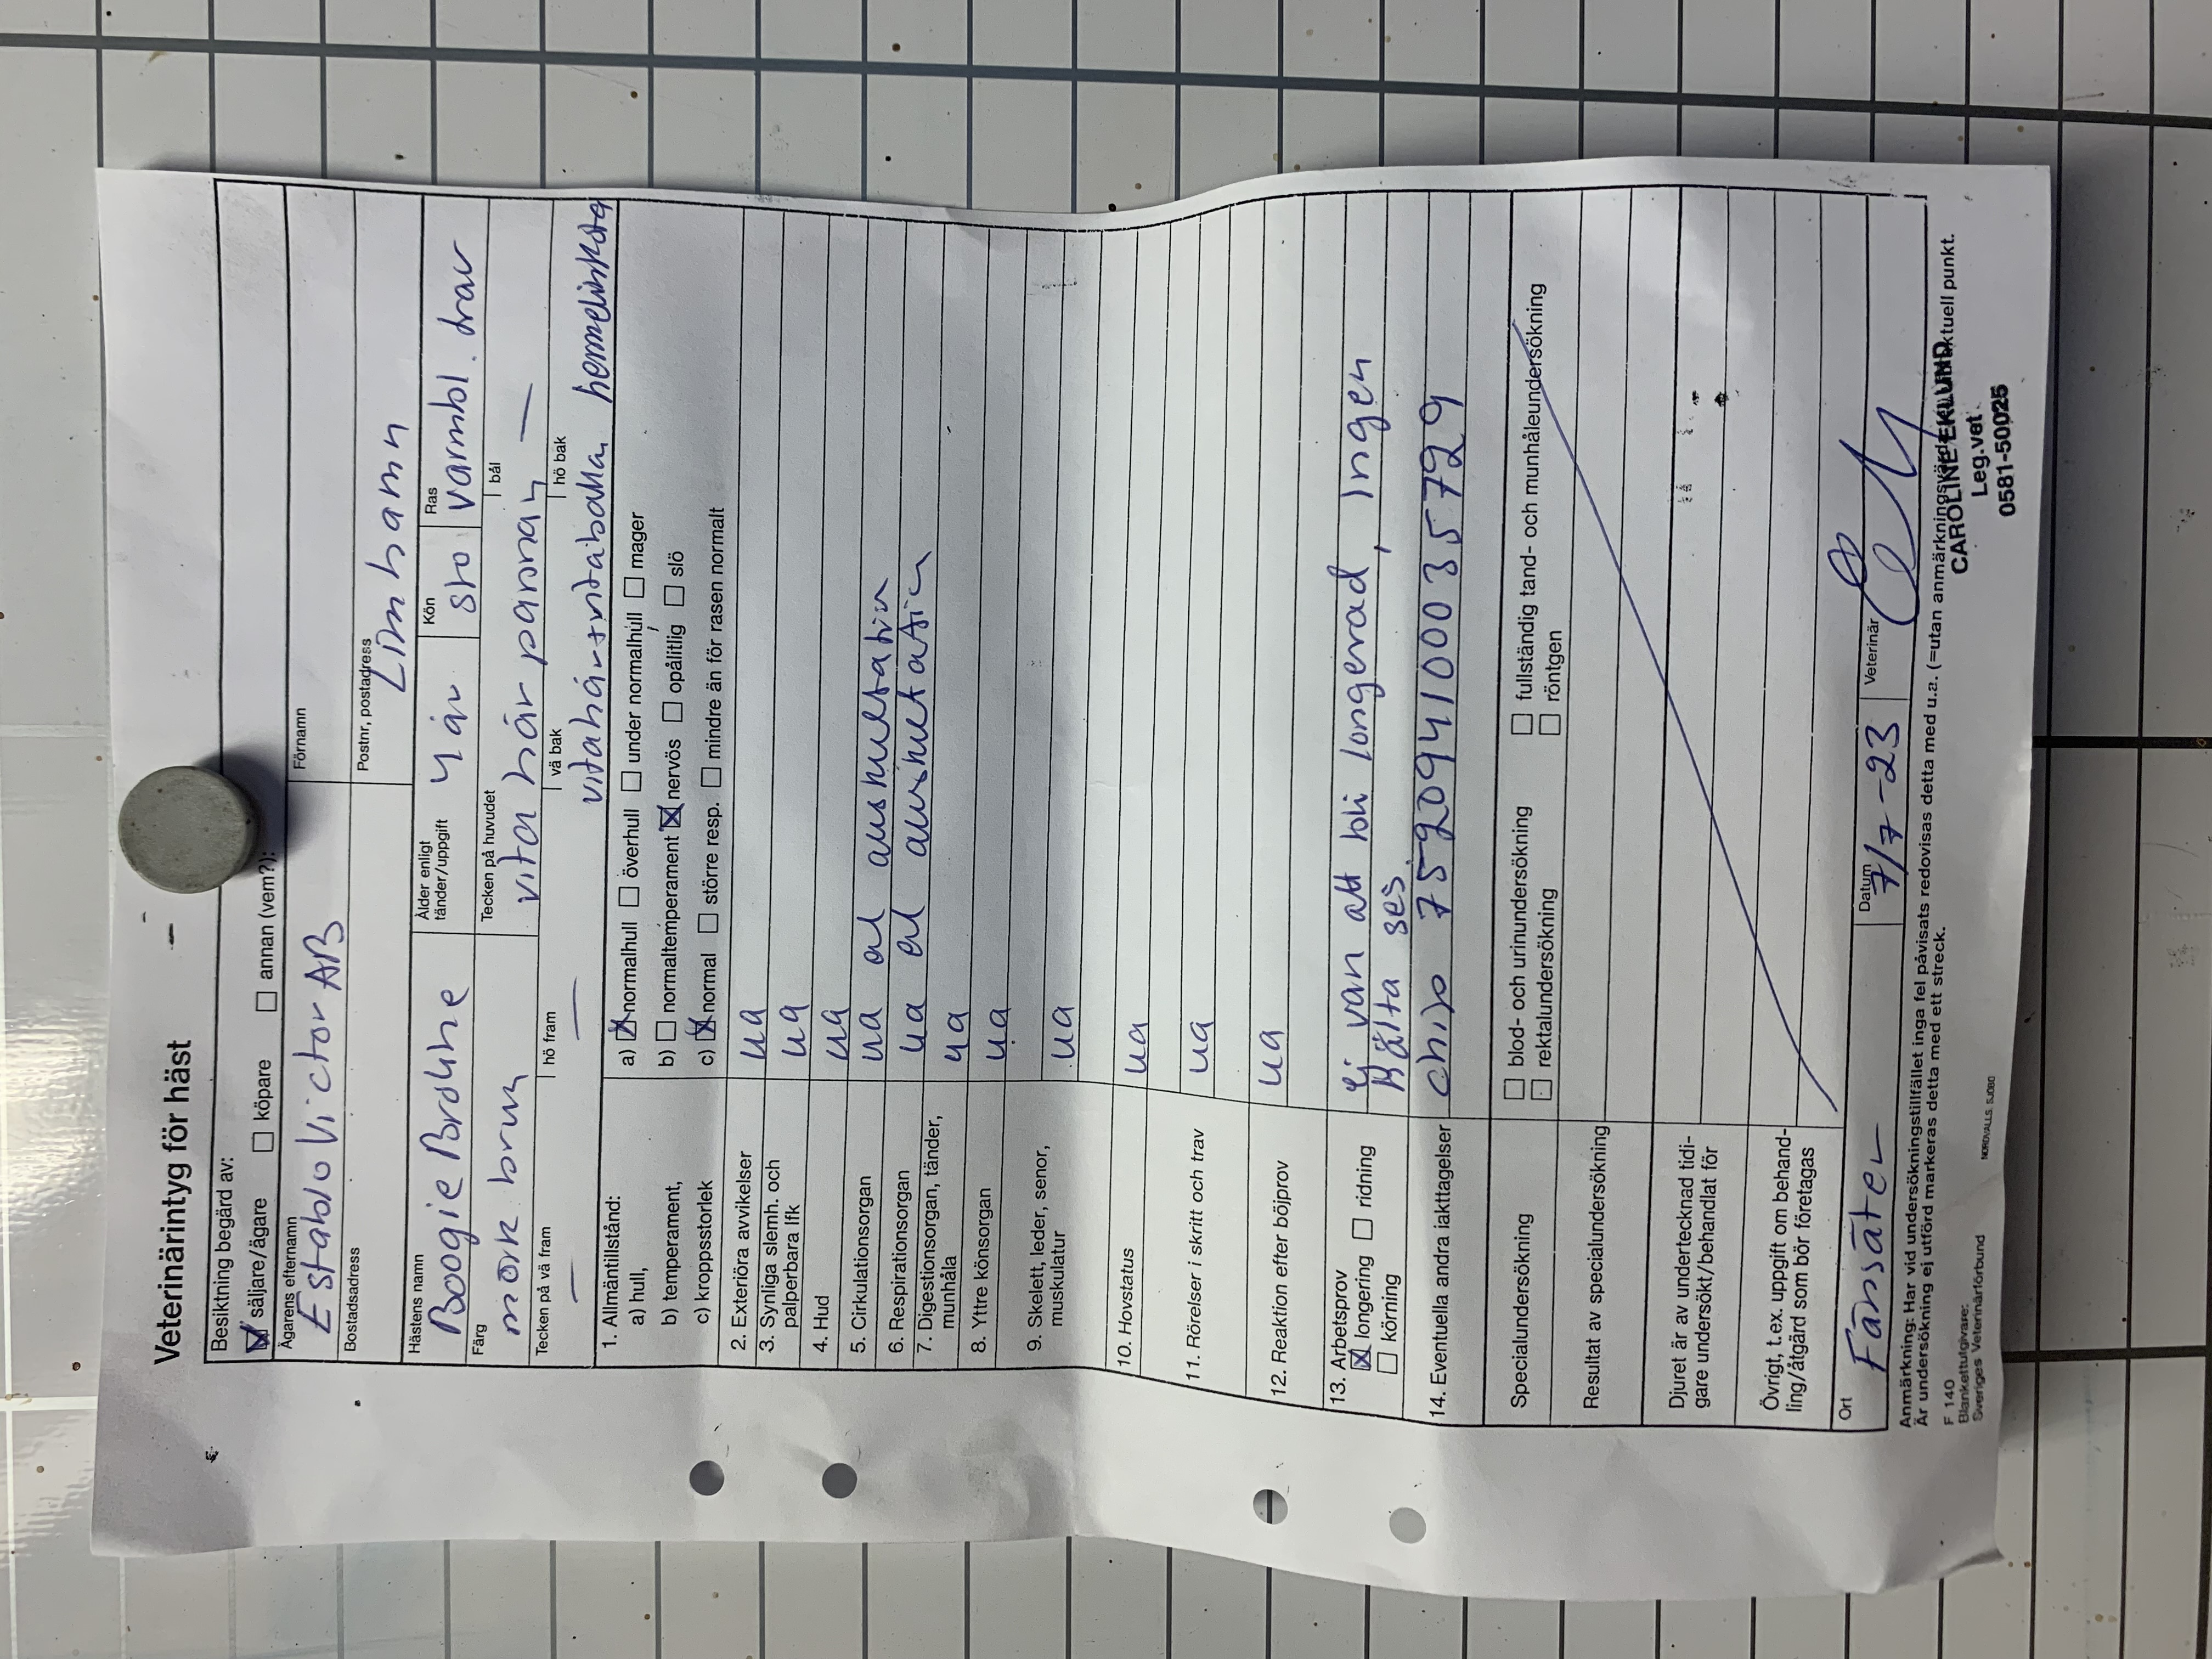 Veterinärintyg för häst
Besiktning begärd av:
säljare/ägare köpare annan (vem?):
Ägarens efternamn Förnamn
Establo Victor AB
Bostadsadress Postnr, postadress
Limhamn
Hästens namn Ålder enligt tänder/uppgift Kön Ras
Boogie Brodhne 4 år sto varmbl. trav
Färg Tecken på huvudet bål
mörk brun vita hår pannan —
Tecken på vä fram hö fram vä bak hö bak
— — vita hår+vitabalka hemelinkota
1. Allmäntillstånd:
a) hull, a) normalhull överhull under normalhull mager
b) temperament, b) normaltemperament nervös opålitlig slö
c) kroppsstorlek c) normal större resp. mindre än för rasen normalt
2. Exteriöra avvikelser ua
3. Synliga slemh. och palperbara lfk ua
4. Hud ua
5. Cirkulationsorgan ua enl auskultation
6. Respirationsorgan ua enl auskultation
7. Digestionsorgan, tänder, munhåla ua
8. Yttre könsorgan ua
9. Skelett, leder, senor, muskulatur ua
10. Hovstatus ua
11. Rörelser i skritt och trav ua
12. Reaktion efter böjprov ua
13. Arbetsprov
longering ridning
körning
ej van att bli longerad, ingen
hälta ses.
14. Eventuella andra iakttagelser chip 752094100035729
Specialundersökning
blod- och urinundersökning fullständig tand- och munhåleundersökning
rektalundersökning röntgen
Resultat av specialundersökning
Djuret är av undertecknad tidi-
gare undersökt/behandlat för
Övrigt, t.ex. uppgift om behand-
ling/åtgärd som bör företagas
Ort Datum Veterinär
Fånsåter 7/7-23
Anmärkning: Har vid undersökningstillfället inga fel påvisats redovisas detta med u.a. (=utan anmärkningsvärde aktuell punkt.
Är undersökning ej utförd markeras detta med ett streck.
CAROLINE EKLUND
Leg.vet
0581-50025
F 140
Blankettutgivare:
Sveriges Veterinärförbund
NORDVALLS SJÖBO